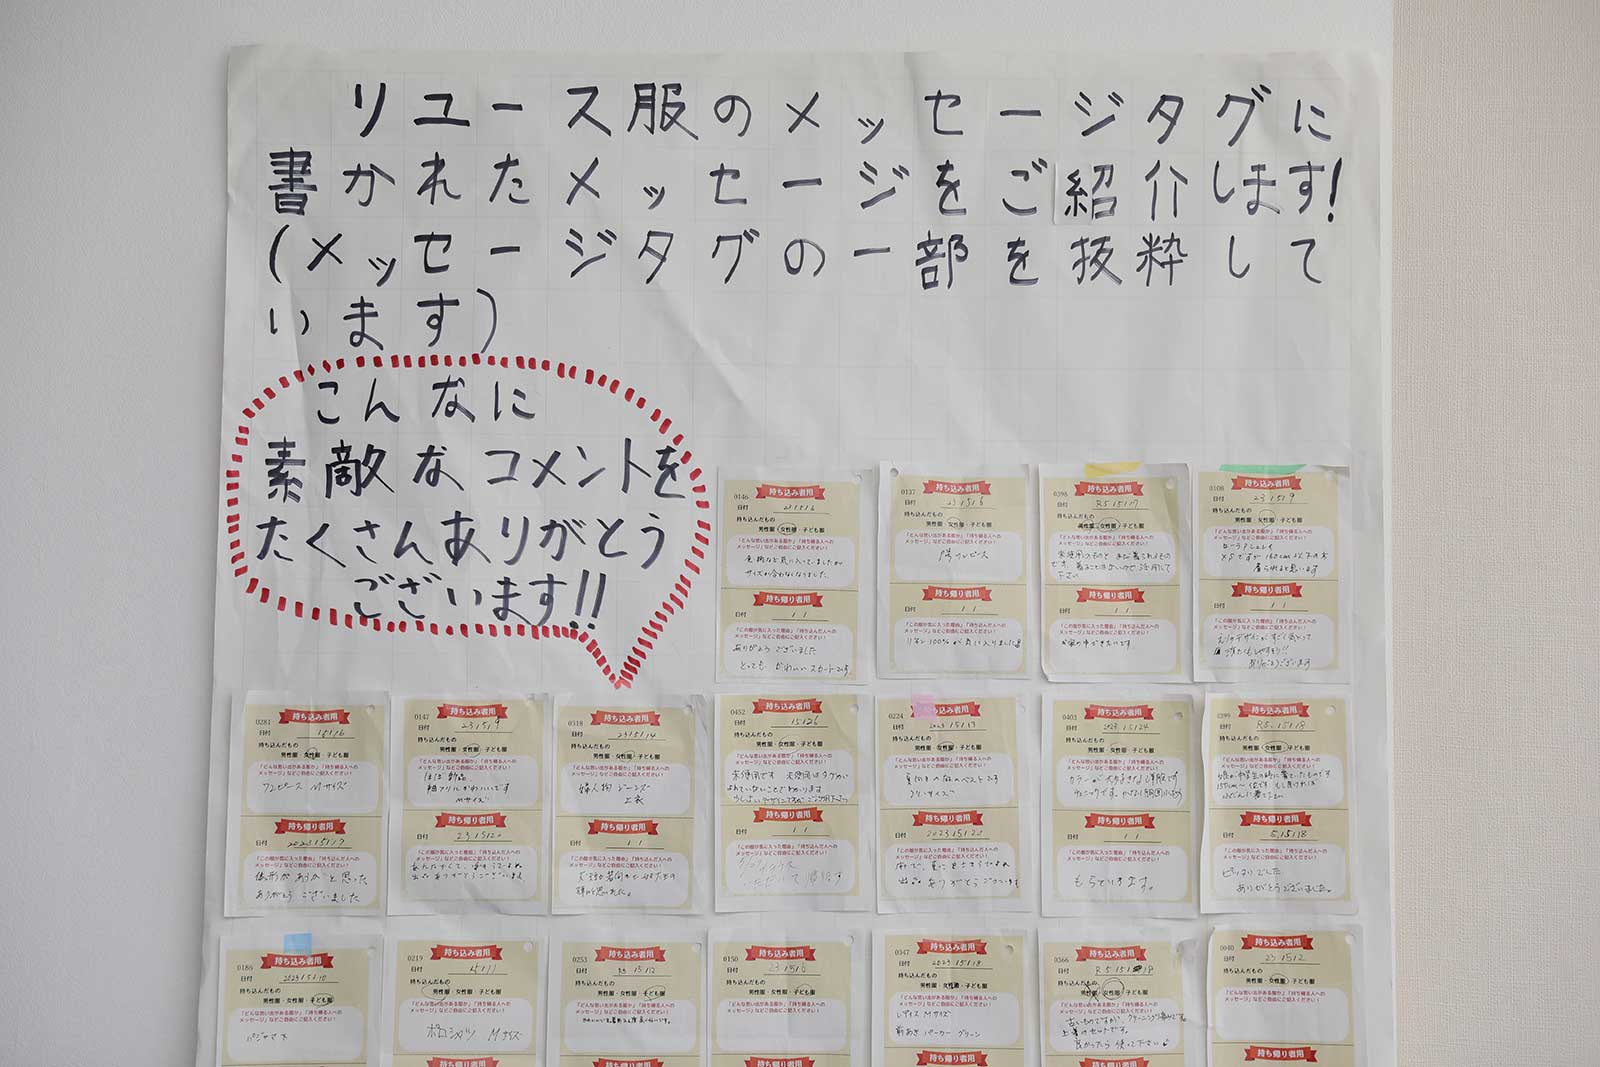 リユース服のメッセージタグに
書かれたメッセージをご紹介します!
(メッセージタグの一部を抜粋して
います)
こんなに
素敵なコメントを
たくさんありがとう
ございます!!
0146
持ち込み者用
日付
持ち込んだもの
男性服・女性服・子ども服
「どんな思い出がある服か」「持ち帰る人への
メッセージ」などご自由にご記入ください!
色柄など気に入っていましたが
サイズが合わなくなりました。
持ち帰り者用
日付
「この服が気に入った理由」「持ち込んだ人への
メッセージ」などご自由にご記入ください!
ありがとうございました
とても かわいいスカートです
0137
持ち込み者用
日付 23 15 16
持ち込んだもの
男性服・女性服・子ども服
「どんな思い出がある服か」「持ち帰る人への
メッセージ」などご自由にご記入ください!
持ち帰り者用
日付
「この服が気に入った理由」「持ち込んだ人への
メッセージ」などご自由にご記入ください!
リネン100%が気に入りました
0398
持ち込み者用
日付 R5.15.17
持ち込んだもの
男性服・女性服・子ども服
「どんな思い出がある服か」「持ち帰る人への
メッセージ」などご自由にご記入ください!
持ち帰り者用
日付
「この服が気に入った理由」「持ち込んだ人への
メッセージ」などご自由にご記入ください!
0108
持ち込み者用
日付 23 15 19
持ち込んだもの
男性服・女性服・子ども服
「どんな思い出がある服か」「持ち帰る人への
メッセージ」などご自由にご記入ください!
着られると思います
持ち帰り者用
日付
「この服が気に入った理由」「持ち込んだ人への
メッセージ」などご自由にご記入ください!
ありがとうございます
0281
持ち込み者用
日付 15 16
持ち込んだもの
男性服・女性服・子ども服
「どんな思い出がある服か」「持ち帰る人への
メッセージ」などご自由にご記入ください!
ワンピース Mサイズ
持ち帰り者用
日付 2023 15 17
「この服が気に入った理由」「持ち込んだ人への
メッセージ」などご自由にご記入ください!
ありがとうございました
0147
持ち込み者用
日付 23 15 19
持ち込んだもの
男性服・女性服・子ども服
「どんな思い出がある服か」「持ち帰る人への
メッセージ」などご自由にご記入ください!
ほぼ新品
Mサイズ
持ち帰り者用
日付 23 15 20
「この服が気に入った理由」「持ち込んだ人への
メッセージ」などご自由にご記入ください!
出品ありがとうございます
0318
持ち込み者用
日付 23 15 14
持ち込んだもの
男性服・女性服・子ども服
「どんな思い出がある服か」「持ち帰る人への
メッセージ」などご自由にご記入ください!
婦人物 ジーンズ
上衣
持ち帰り者用
日付
「この服が気に入った理由」「持ち込んだ人への
メッセージ」などご自由にご記入ください!
0452
持ち込み者用
日付 15 26
持ち込んだもの
男性服・女性服・子ども服
「どんな思い出がある服か」「持ち帰る人への
メッセージ」などご自由にご記入ください!
未使用です
持ち帰り者用
日付
「この服が気に入った理由」「持ち込んだ人への
メッセージ」などご自由にご記入ください!
0224
持ち込み者用
日付 2023 15 13
持ち込んだもの
男性服・女性服・子ども服
「どんな思い出がある服か」「持ち帰る人への
メッセージ」などご自由にご記入ください!
フリーサイズ
持ち帰り者用
日付 2023 15 20
「この服が気に入った理由」「持ち込んだ人への
メッセージ」などご自由にご記入ください!
出品ありがとうございます
0403
持ち込み者用
日付 2023 15 24
持ち込んだもの
男性服・女性服・子ども服
「どんな思い出がある服か」「持ち帰る人への
メッセージ」などご自由にご記入ください!
持ち帰り者用
日付
「この服が気に入った理由」「持ち込んだ人への
メッセージ」などご自由にご記入ください!
もらていきます。
0399
持ち込み者用
日付 R5.15.18
持ち込んだもの
男性服・女性服・子ども服
「どんな思い出がある服か」「持ち帰る人への
メッセージ」などご自由にご記入ください!
娘が中学生の時に着ていたものです
持ち帰り者用
日付 5.15.18
「この服が気に入った理由」「持ち込んだ人への
メッセージ」などご自由にご記入ください!
ピッタリでした
ありがとうございました。
0186
持ち込み者用
日付 2023 15 10
持ち込んだもの
男性服・女性服・子ども服
「どんな思い出がある服か」「持ち帰る人への
メッセージ」などご自由にご記入ください!
パジャマ下
持ち帰り者用
0219
持ち込み者用
日付
持ち込んだもの
男性服・女性服・子ども服
「どんな思い出がある服か」「持ち帰る人への
メッセージ」などご自由にご記入ください!
ポロシャツ Mサイズ
持ち帰り者用
0253
持ち込み者用
日付 R5 15 12
持ち込んだもの
男性服・女性服・子ども服
「どんな思い出がある服か」「持ち帰る人への
メッセージ」などご自由にご記入ください!
持ち帰り者用
0150
持ち込み者用
日付 23 15 16
持ち込んだもの
男性服・女性服・子ども服
「どんな思い出がある服か」「持ち帰る人への
メッセージ」などご自由にご記入ください!
持ち帰り者用
0347
持ち込み者用
日付 2023 15 18
持ち込んだもの
男性服・女性服・子ども服
「どんな思い出がある服か」「持ち帰る人への
メッセージ」などご自由にご記入ください!
レディス Mサイズ
前あき パーカー グリーン
持ち帰り者用
0366
持ち込み者用
日付 R5 15 18
持ち込んだもの
男性服・女性服・子ども服
「どんな思い出がある服か」「持ち帰る人への
メッセージ」などご自由にご記入ください!
古いものですが、クリーニング済みです。
上下のセットです。
良かったら使って下さい
持ち帰り者用
0040
持ち込み者用
日付 23 15 12
持ち込んだもの
男性服・女性服・子ども服
「どんな思い出がある服か」「持ち帰る人への
メッセージ」などご自由にご記入ください!
持ち帰り者用